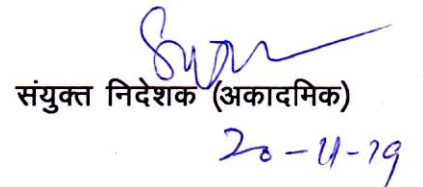 संयुक्त निदेशक (अकादमिक)
20-11-19